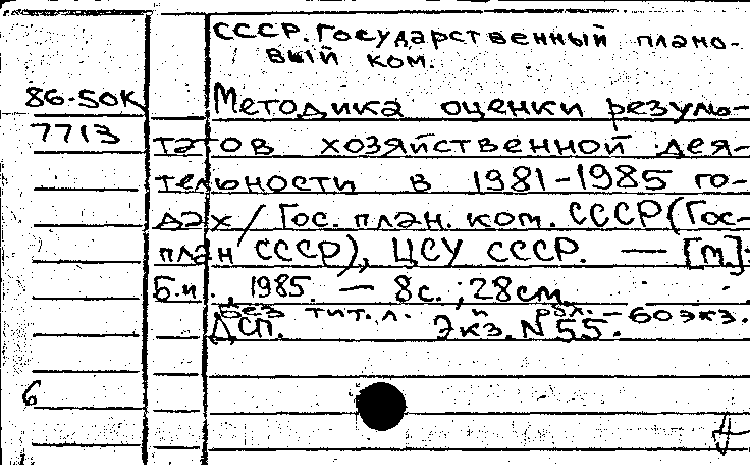 СССР. Государственный плано-
вый ком.
86-50К
7713
Методика оценки резуль-
татов хозяйственной дея-
тельности в 1981-1985 го-
дах / Гос. план. ком. СССР (Гос-
план СССР), ЦСУ СССР. — [м.]:
Б.и., 1985. — 8с.; 28см.
без тит. л. и обл. — 60 экз.
ДСП. Экз. N 55.
6